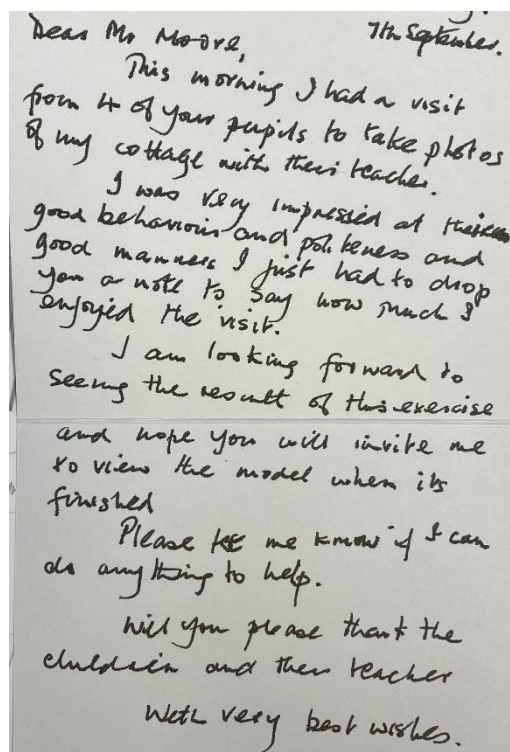 7th September.
Dear Mr Moore,
This morning I had a visit
from 4 of your pupils to take photos
of my cottage with their teacher.
I was very impressed at their
good behaviour and politeness and
good manners I just had to drop
you a note to say how much I
enjoyed the visit.
I am looking forward to
seeing the result of this exercise
and hope you will invite me
to view the model when its
finished
Please let me know if I can
do anything to help.
Will you please thank the
children and their teacher
With very best wishes.